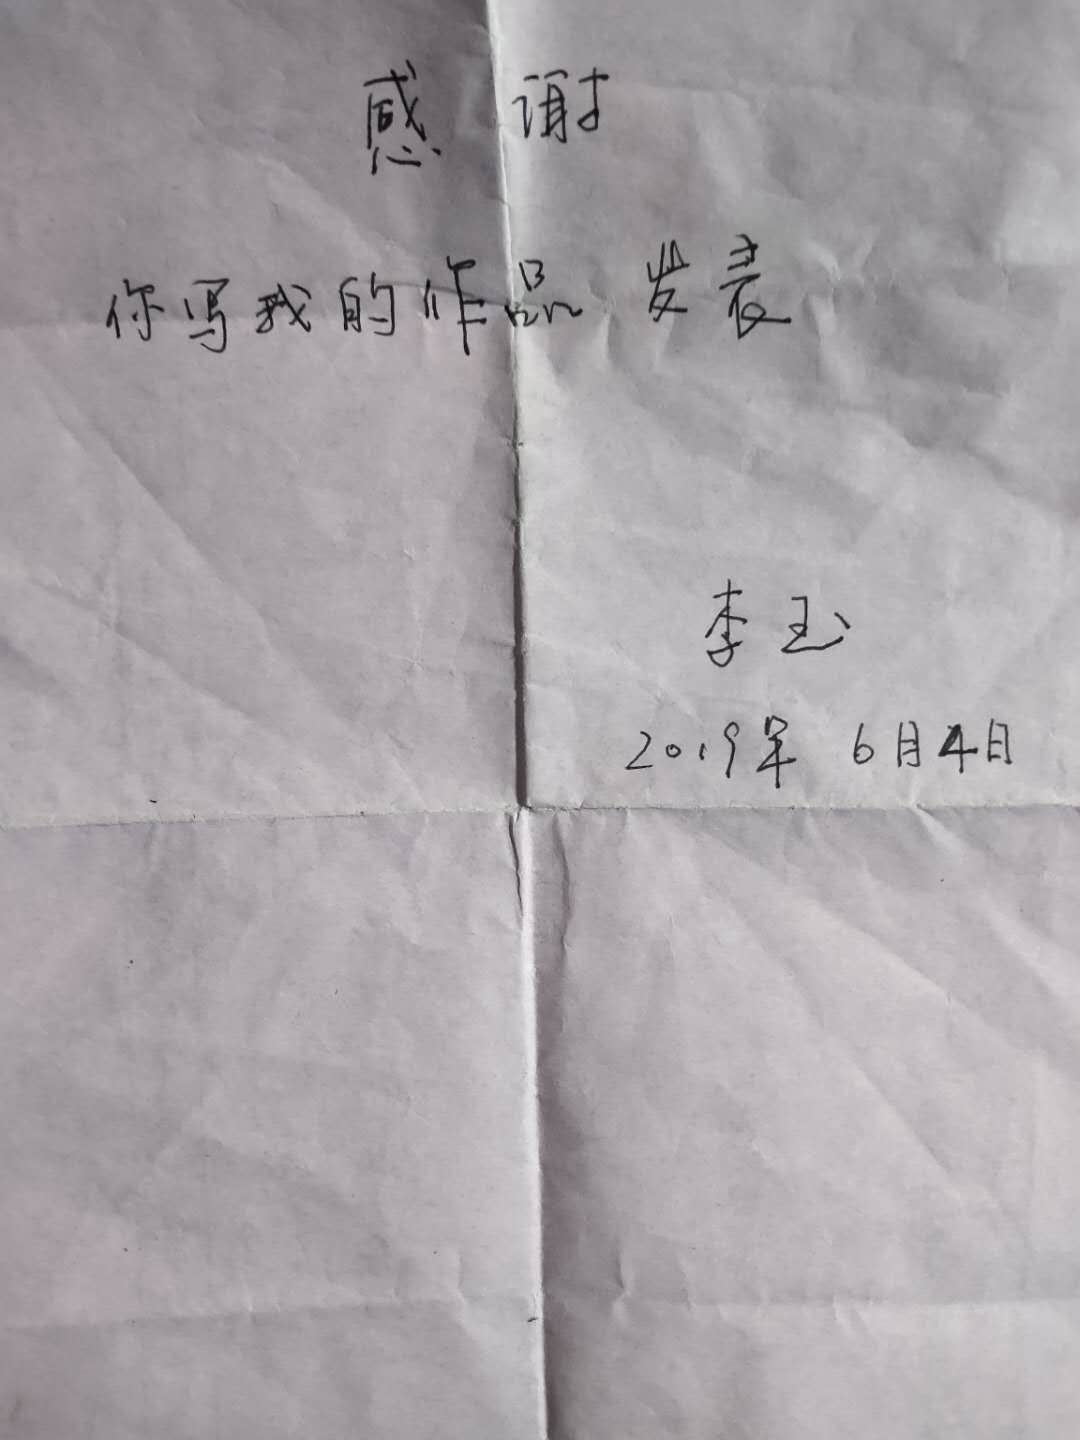 感谢
你写我的作品发表
李玉
2019年 6月4日